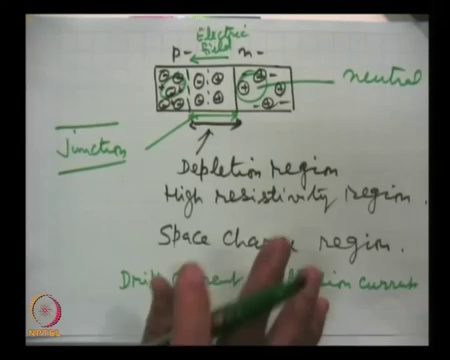 Electric
field
p- n-
neutral
junction
Depletion region
High resistivity region.
Space region.
Drift current
NPTEL